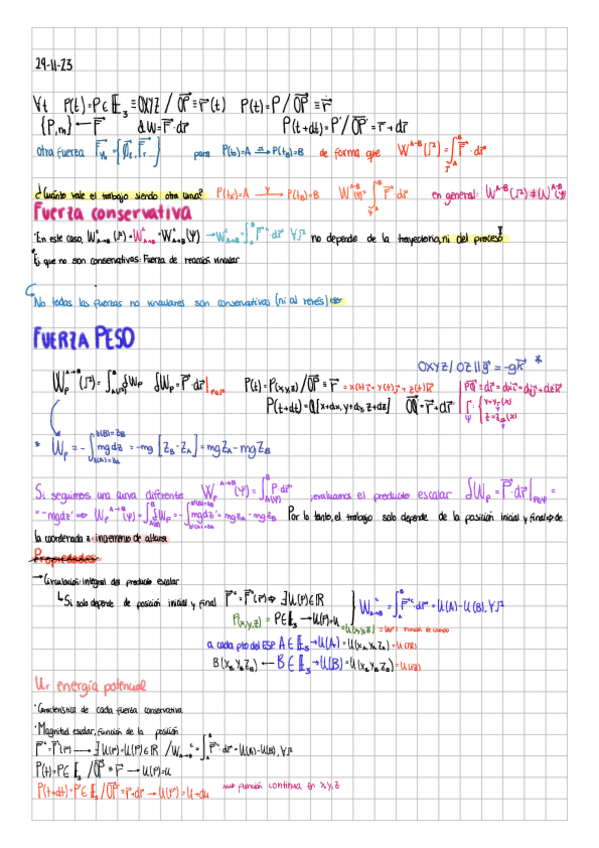 29-11-23
∀t P(t)=P∈E₃≡OXYZ / OP≡r(t) P(t)=P / OP≡r
{P,m}←F dW=F·dr P(t+dt)=P'/OP'=r+dr
otra fuerza para P(t₀)=A → P(t_B)=B de forma que W^{A→B}(Γ)=∫_A^B F·dr
¿Cuánto vale el trabajo siendo otra curva? P(t_A)=A →^Ψ P(t_B)=B W^{A→B}=∫_A^B F·dr en general: W^{A→B}(Γ)≠W^{A→B}(Ψ)
Fuerza conservativa
·En este caso, W_{A→B}(Γ)=W_{A→B}=W_{A→B}(Ψ) → W_{A→B}=∫_A^B F·dr ∀Γ no depende de la trayectoria, ni del proceso
Ej que no son conservativas: Fuerza de reacción vincular
No todas las fuerzas no vinculares son conservativas (ni al revés)
FUERZA PESO
OXYZ / OZ || g = -gk *
W_P^{A→B}(Γ)=∫ δW_P δW_P=P·dr P(t)=P(x,y,z) / OP≡r = x(t)i+y(t)j+z(t)k PQ=dr=dxi+dyj+dzk
P(t+dt)=Q[x+dx, y+dy, z+dz] OQ=r+dr
* W_P=-∫_{z(A)=z_A}^{z(B)=z_B} mgdz=-mg[z_B-z_A]=mgz_A-mgz_B
Si seguimos una curva diferente W_P^{A→B}(Ψ)=∫ P·dr, evaluamos el producto escalar δW_P=P·dr =
=-mgdz ⇒ W_P^{A→B}(Ψ)=∫δW_P=-∫mgdz=mgz_A-mgz_B Por lo tanto, el trabajo solo depende de la posición inicial y final ⇒ de
la coordenada z: incremento de altura
Propiedades
→Circulación: integral del producto escalar
↳Si solo depende de posición inicial y final F=F(P)⇒∃U(P)∈R } W_{A→B}=∫_A^B F·dr=U(A)-U(B), ∀Γ
P(x,y,z)=P∈E₃→U(P)=U
a cada pto del ESP. A∈E₃→U(A)=U(x_A,y_A,z_A)
B(x_B,y_B,z_B)←B∈E₃→U(B)=U(x_B,y_B,z_B)=U(B)
U, energía potencial
·Característica de cada fuerza conservativa
·Magnitud escalar, función de la posición
F=F(P)→∃U(P)=U(P)∈R / W_{A→B}=∫_A^B F·dr=U(A)-U(B), ∀Γ
P(t)=P∈E₃ / OP=r→U(P)=U
P(t+dt)=P'∈E₃ / OP'=r+dr→U(P')=U+dU función continua en x,y,z